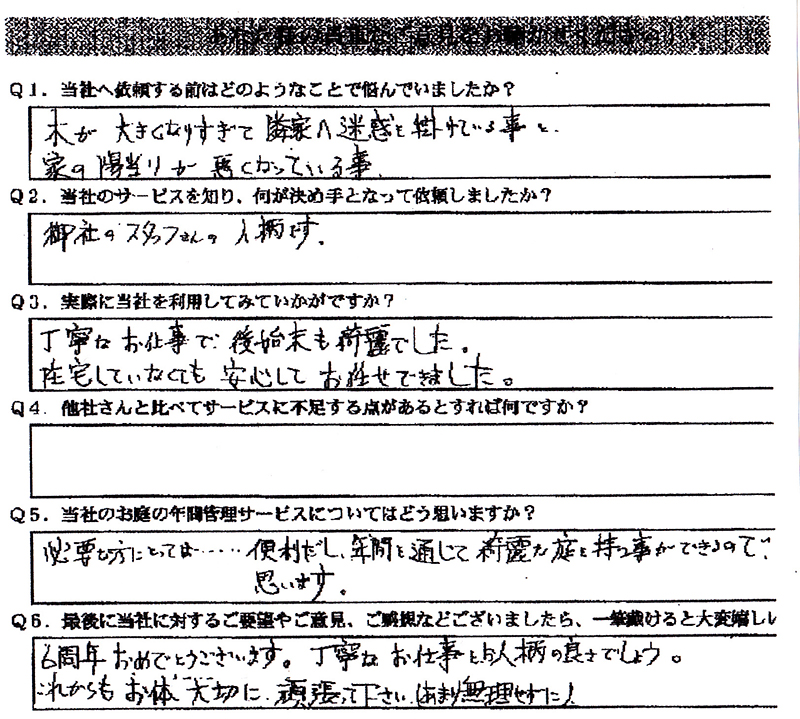 Q1. 当社へ依頼する前はどのようなことで悩んでいましたか?
木が 大きくなりすぎて 隣家へ迷惑を掛けている事と、
家の陽当りが悪くなっている事。
Q2. 当社のサービスを知り、何が決め手となって依頼しましたか?
御社のスタッフさんの人柄です。
Q3. 実際に当社を利用してみていかがですか?
丁寧なお仕事で、後始末も綺麗でした。
在宅していなくても 安心して お任せできました。
Q4. 他社さんと比べてサービスに不足する点があるとすれば何ですか?
Q5. 当社のお庭の年間管理サービスについてはどう思いますか?
必要な方にとっては…… 便利だし、年間を通じて 綺麗な庭を持つ事ができるので、
思います。
Q6. 最後に当社に対するご要望やご意見、ご感想などございましたら、一筆戴けると大変嬉しい
6周年おめでとうございます。丁寧なお仕事とお人柄の良さでしょう。
これからもお体大切に、頑張って下さい。(あまり無理せずに)